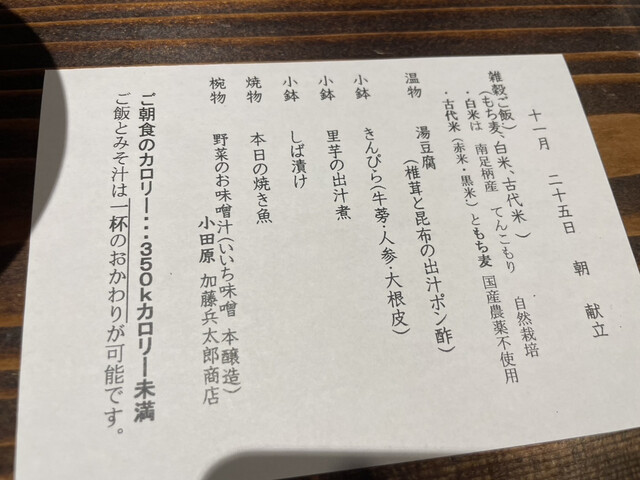 十一月 二十五日 朝 献立
雑穀ご飯(もち麦、白米、古代米)
・白米は 南足柄産 てんこもり 自然栽培
・古代米(赤米・黒米)ともち麦 国産農薬不使用
温物 湯豆腐(椎茸と昆布の出汁ポン酢)
小鉢 きんぴら(牛蒡・人参・大根皮)
小鉢 里芋の出汁煮
小鉢 しば漬け
焼物 本日の焼き魚
椀物 野菜のお味噌汁(いいち味噌 本醸造)
小田原 加藤兵太郎商店
ご朝食のカロリー…350kカロリー未満
ご飯とみそ汁は一杯のおかわりが可能です。